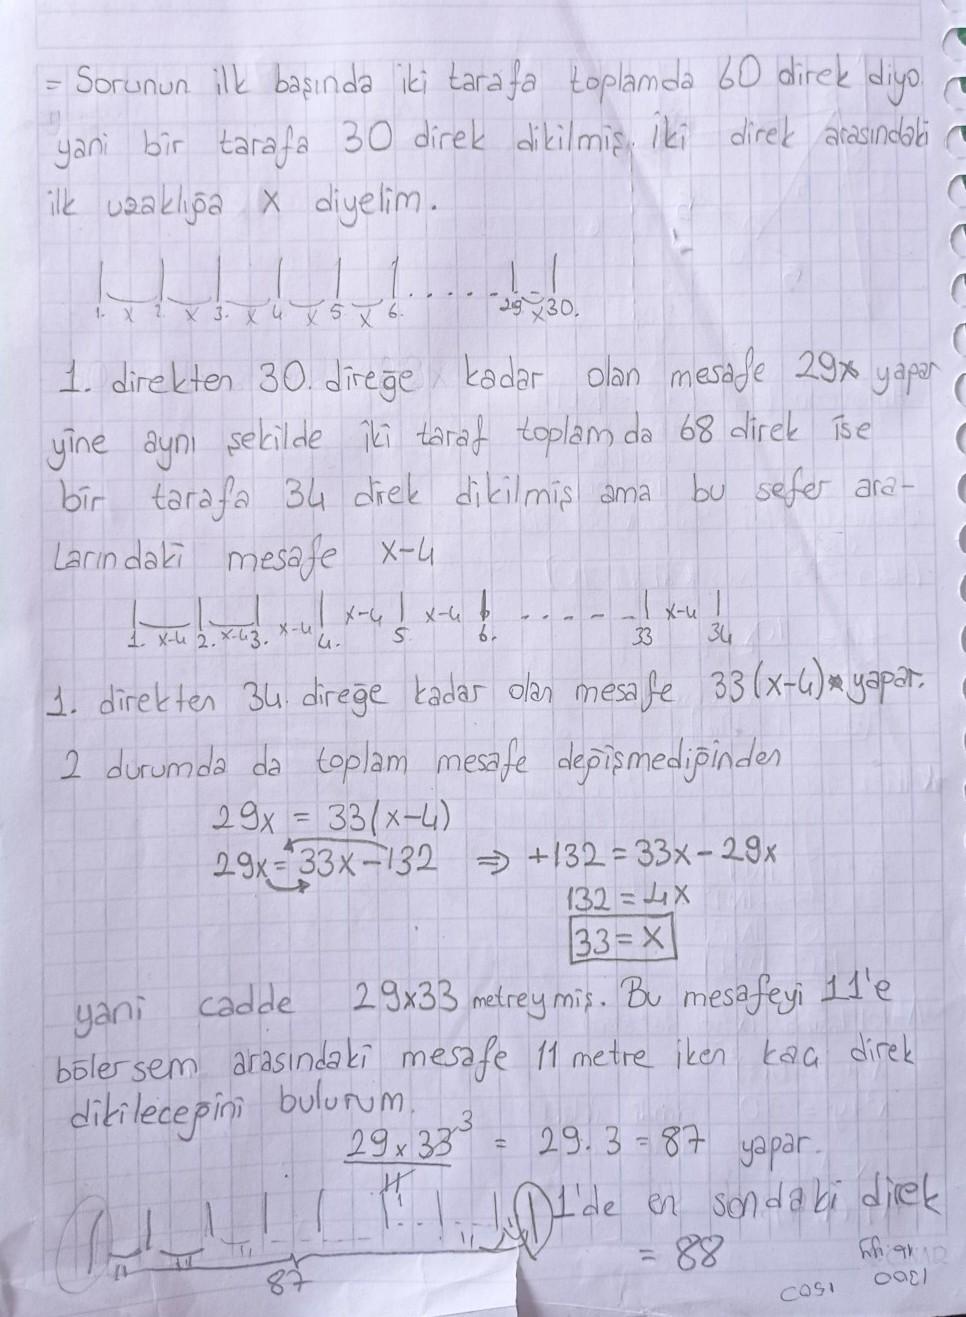 = Sorunun ilk başında iki tarafa toplamda 60 direk diyo.
yani bir tarafa 30 direk dikilmiş. İki direk arasındaki
ilk uzaklığa x diyelim.
1. x 2. x 3. x 4 x 5 x 6. . . . . . 29 x 30.
1. direkten 30. direğe kadar olan mesafe 29x yapar
yine aynı şekilde iki taraf toplamda 68 direk ise
bir tarafa 34 direk dikilmiş ama bu sefer ara-
larındaki mesafe x-4
1. x-4 2. x-4 3. x-4 4. x-4 5. x-4 6. . . . - - 33 x-4 34
1. direkten 34. direğe kadar olan mesafe 33(x-4) yapar.
2 durumda da toplam mesafe değişmediğinden
29x = 33(x-4)
29x = 33x-132 ⇒ +132 = 33x - 29x
132 = 4x
33 = x
yani cadde 29x33 metreymiş. Bu mesafeyi 11'e
bölersem arasındaki mesafe 11 metre iken kaç direk
dikileceğini bulurum.
29 x 33 3 = 29. 3 = 87 yapar.
11
1'de en sondaki direk
11 11 11 11 11
87
= 88
1300
1503